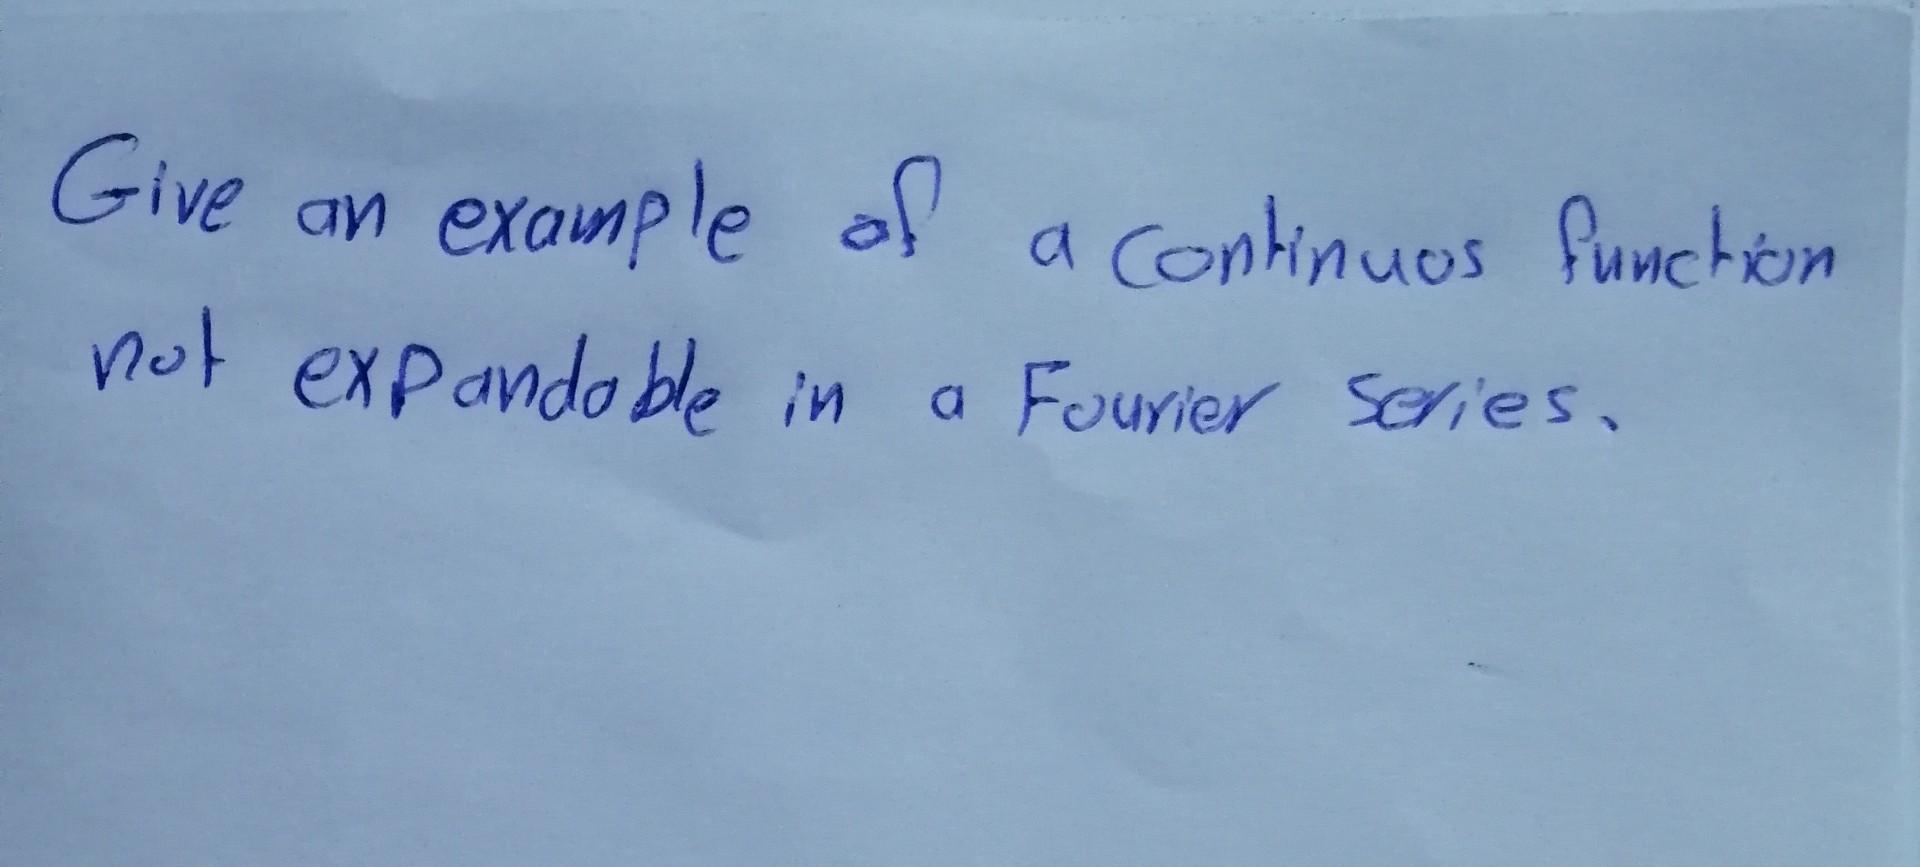 Give an example of a continuos function
not expandable in a Fourier series.